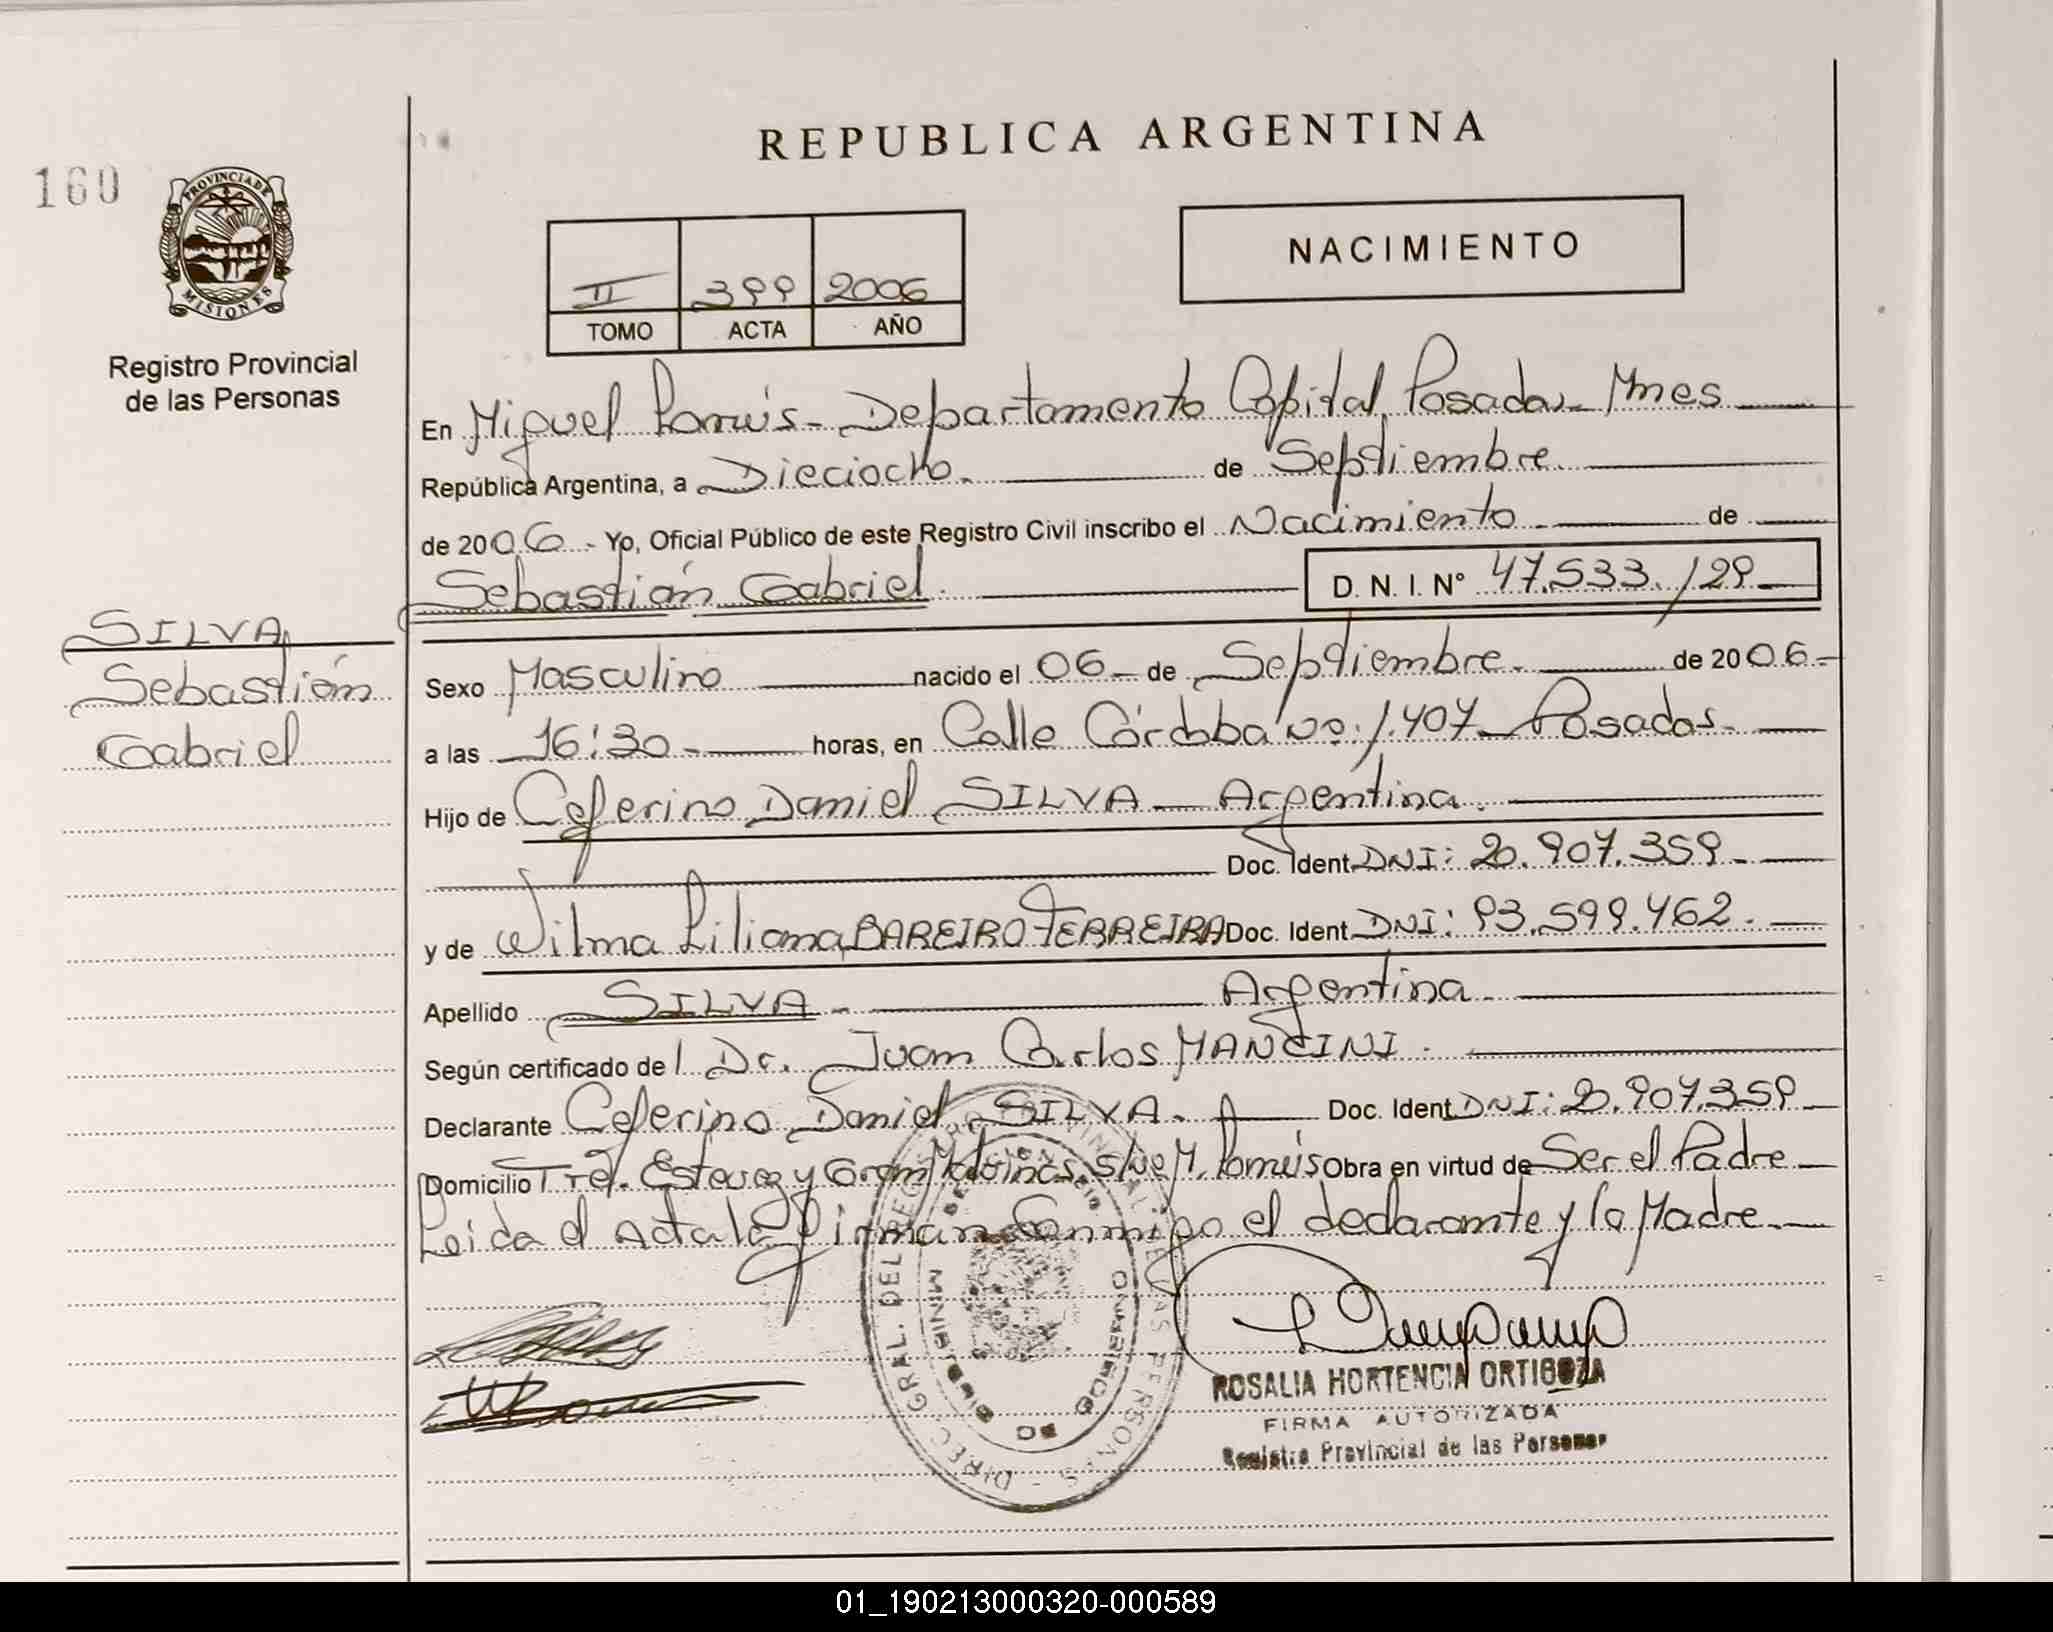 REPUBLICA ARGENTINA
160
PROVINCIA DE
MISIONES
Registro Provincial
de las Personas
NACIMIENTO
II 399 2006
TOMO ACTA AÑO
En Miguel Lanús - Departamento Capital, Posadas - Mnes
República Argentina, a Dieciocho. de Septiembre
de 2006. - Yo, Oficial Público de este Registro Civil inscribo el Nacimiento de
Sebastián Gabriel. D. N. I. N° 47.533.129
SILVA
Sebastián
Gabriel
Sexo Masculino nacido el 06 - de Septiembre. de 2006.-
a las 16:30 - horas, en Calle Córdoba Nº 1.407 - Posadas.
Hijo de Ceferino Daniel SILVA - Argentina.
Doc. Ident DNI: 20.907.359 -
y de Wilma Liliana BAREIRO FERREIRA Doc. Ident DNI: 93.599.462.
Apellido SILVA - Argentina
Según certificado del Dr. Juan Carlos MANCINI.
Declarante Ceferino Daniel SILVA. Doc. Ident DNI: 20.907.359
Domicilio Tte. Estevez y Gran Malvinas s/nº M. Lanús Obra en virtud de Ser el Padre
Leida el Acta la firman Conmigo el declarante y la Madre.
DIREC. GRAL. DEL REGISTRO PROVINCIAL DE LAS PERSONAS -
ROSALIA HORTENCIA ORTIGOZA
FIRMA AUTORIZADA
Registro Provincial de las Personas
01_190213000320-000589